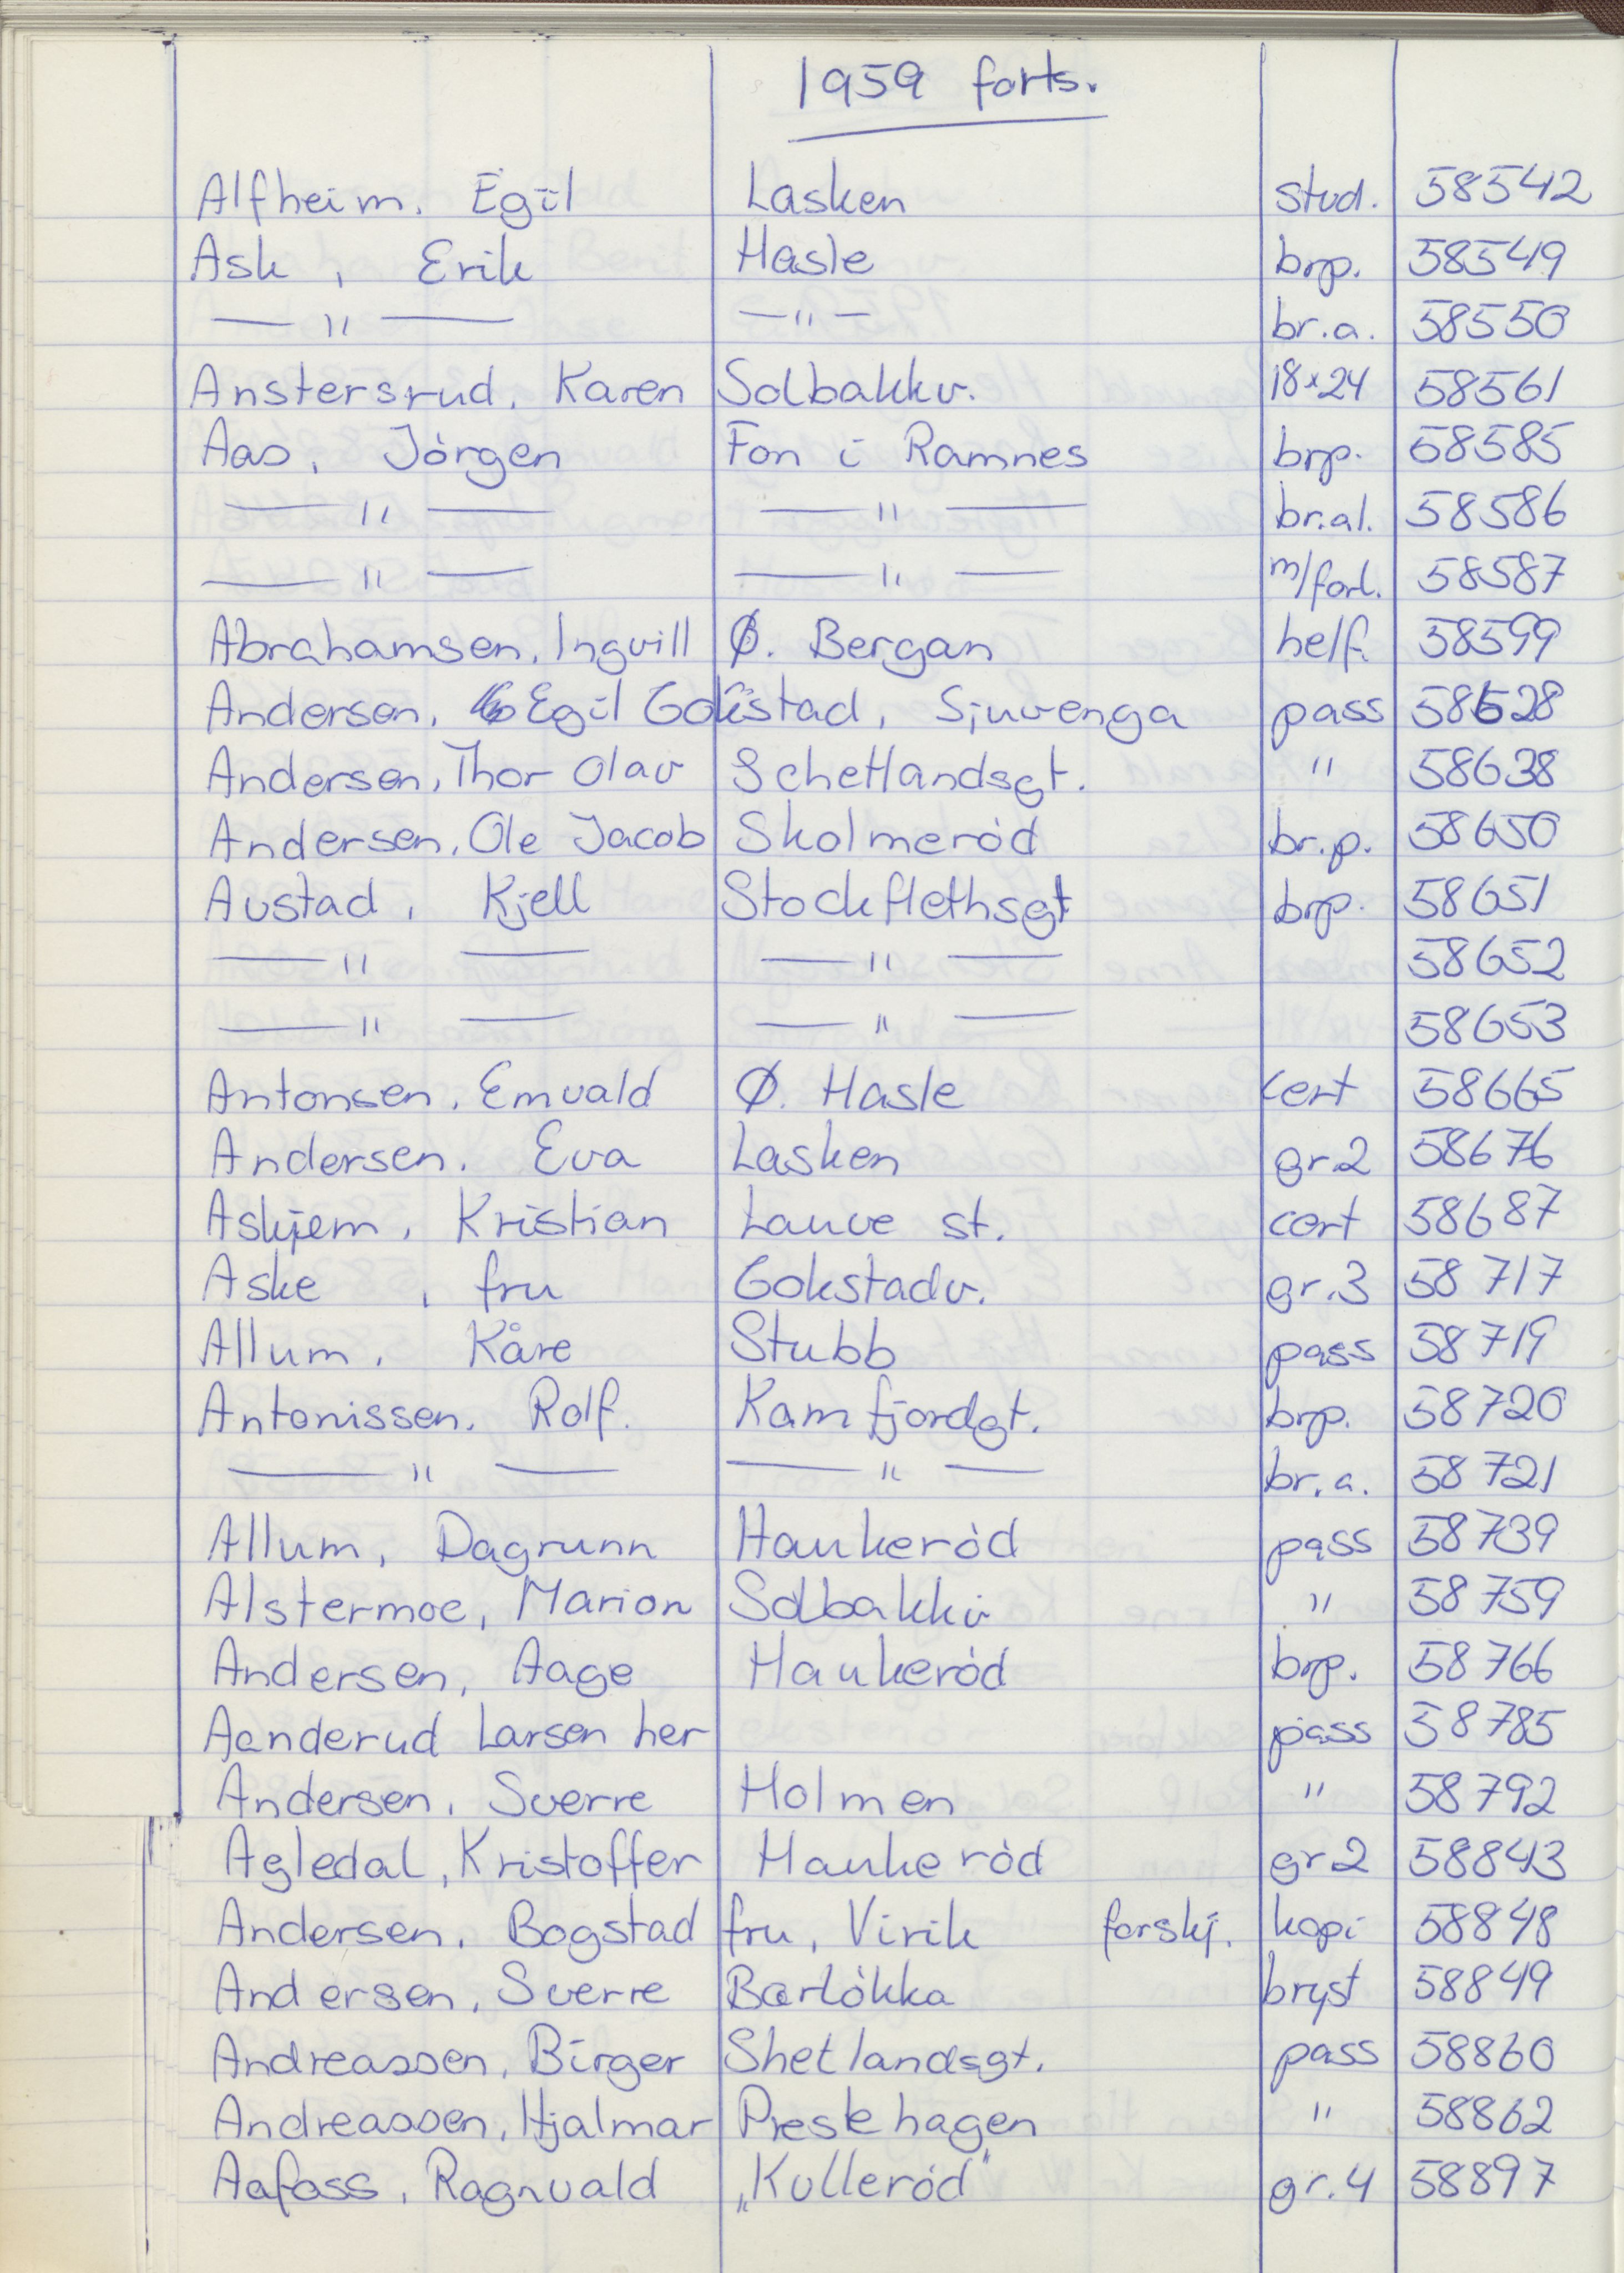 1959 forts.
Alfheim, Egil Lasken stud. 58542
Ask, Erik Hasle brp. 58549
— " — — " — br.a. 58550
Anstersrud, Karen Solbakkv. 18x24 58561
Aas, Jörgen Fon i Ramnes brp. 58585
— " — — " — br.al. 58586
— " — — " — m/forl. 58587
Abrahamsen, Ingvill Ø. Bergan helf. 58599
Andersen, Egil Gokstad, Sjuvenga pass 58628
Andersen, Thor Olav Schetlandsgt. " 58638
Andersen, Ole Jacob Skolmeröd br.p. 58650
Austad, Kjell Stockflethsgt brp. 58651
— " — — " — 58652
— " — — " — 58653
Antonsen, Emvald Ø. Hasle cert 58665
Andersen, Eva Lasken gr.2 58676
Askjem, Kristian Lauve st. cert 58687
Aske, fru Gokstadv. gr.3 58717
Allum, Kåre Stubb pass 58719
Antonissen, Rolf. Kamfjordgt. brp. 58720
— " — — " — br.a. 58721
Allum, Dagrunn Haukeröd pass 58739
Alstermoe, Marion Solbakkv " 58759
Andersen, Aage Haukeröd brp. 58766
Aanderud Larsen her pass 58785
Andersen, Sverre Holmen " 58792
Agledal, Kristoffer Haukeröd gr2 58843
Andersen, Bogstad fru, Virik forskj. kopi 58848
Andersen, Sverre Barlökka bryst 58849
Andreassen, Birger Shetlandsgt. pass 58860
Andreassen, Hjalmar Prestehagen " 58862
Aafoss, Ragnvald „Kulleröd" gr.4 58897